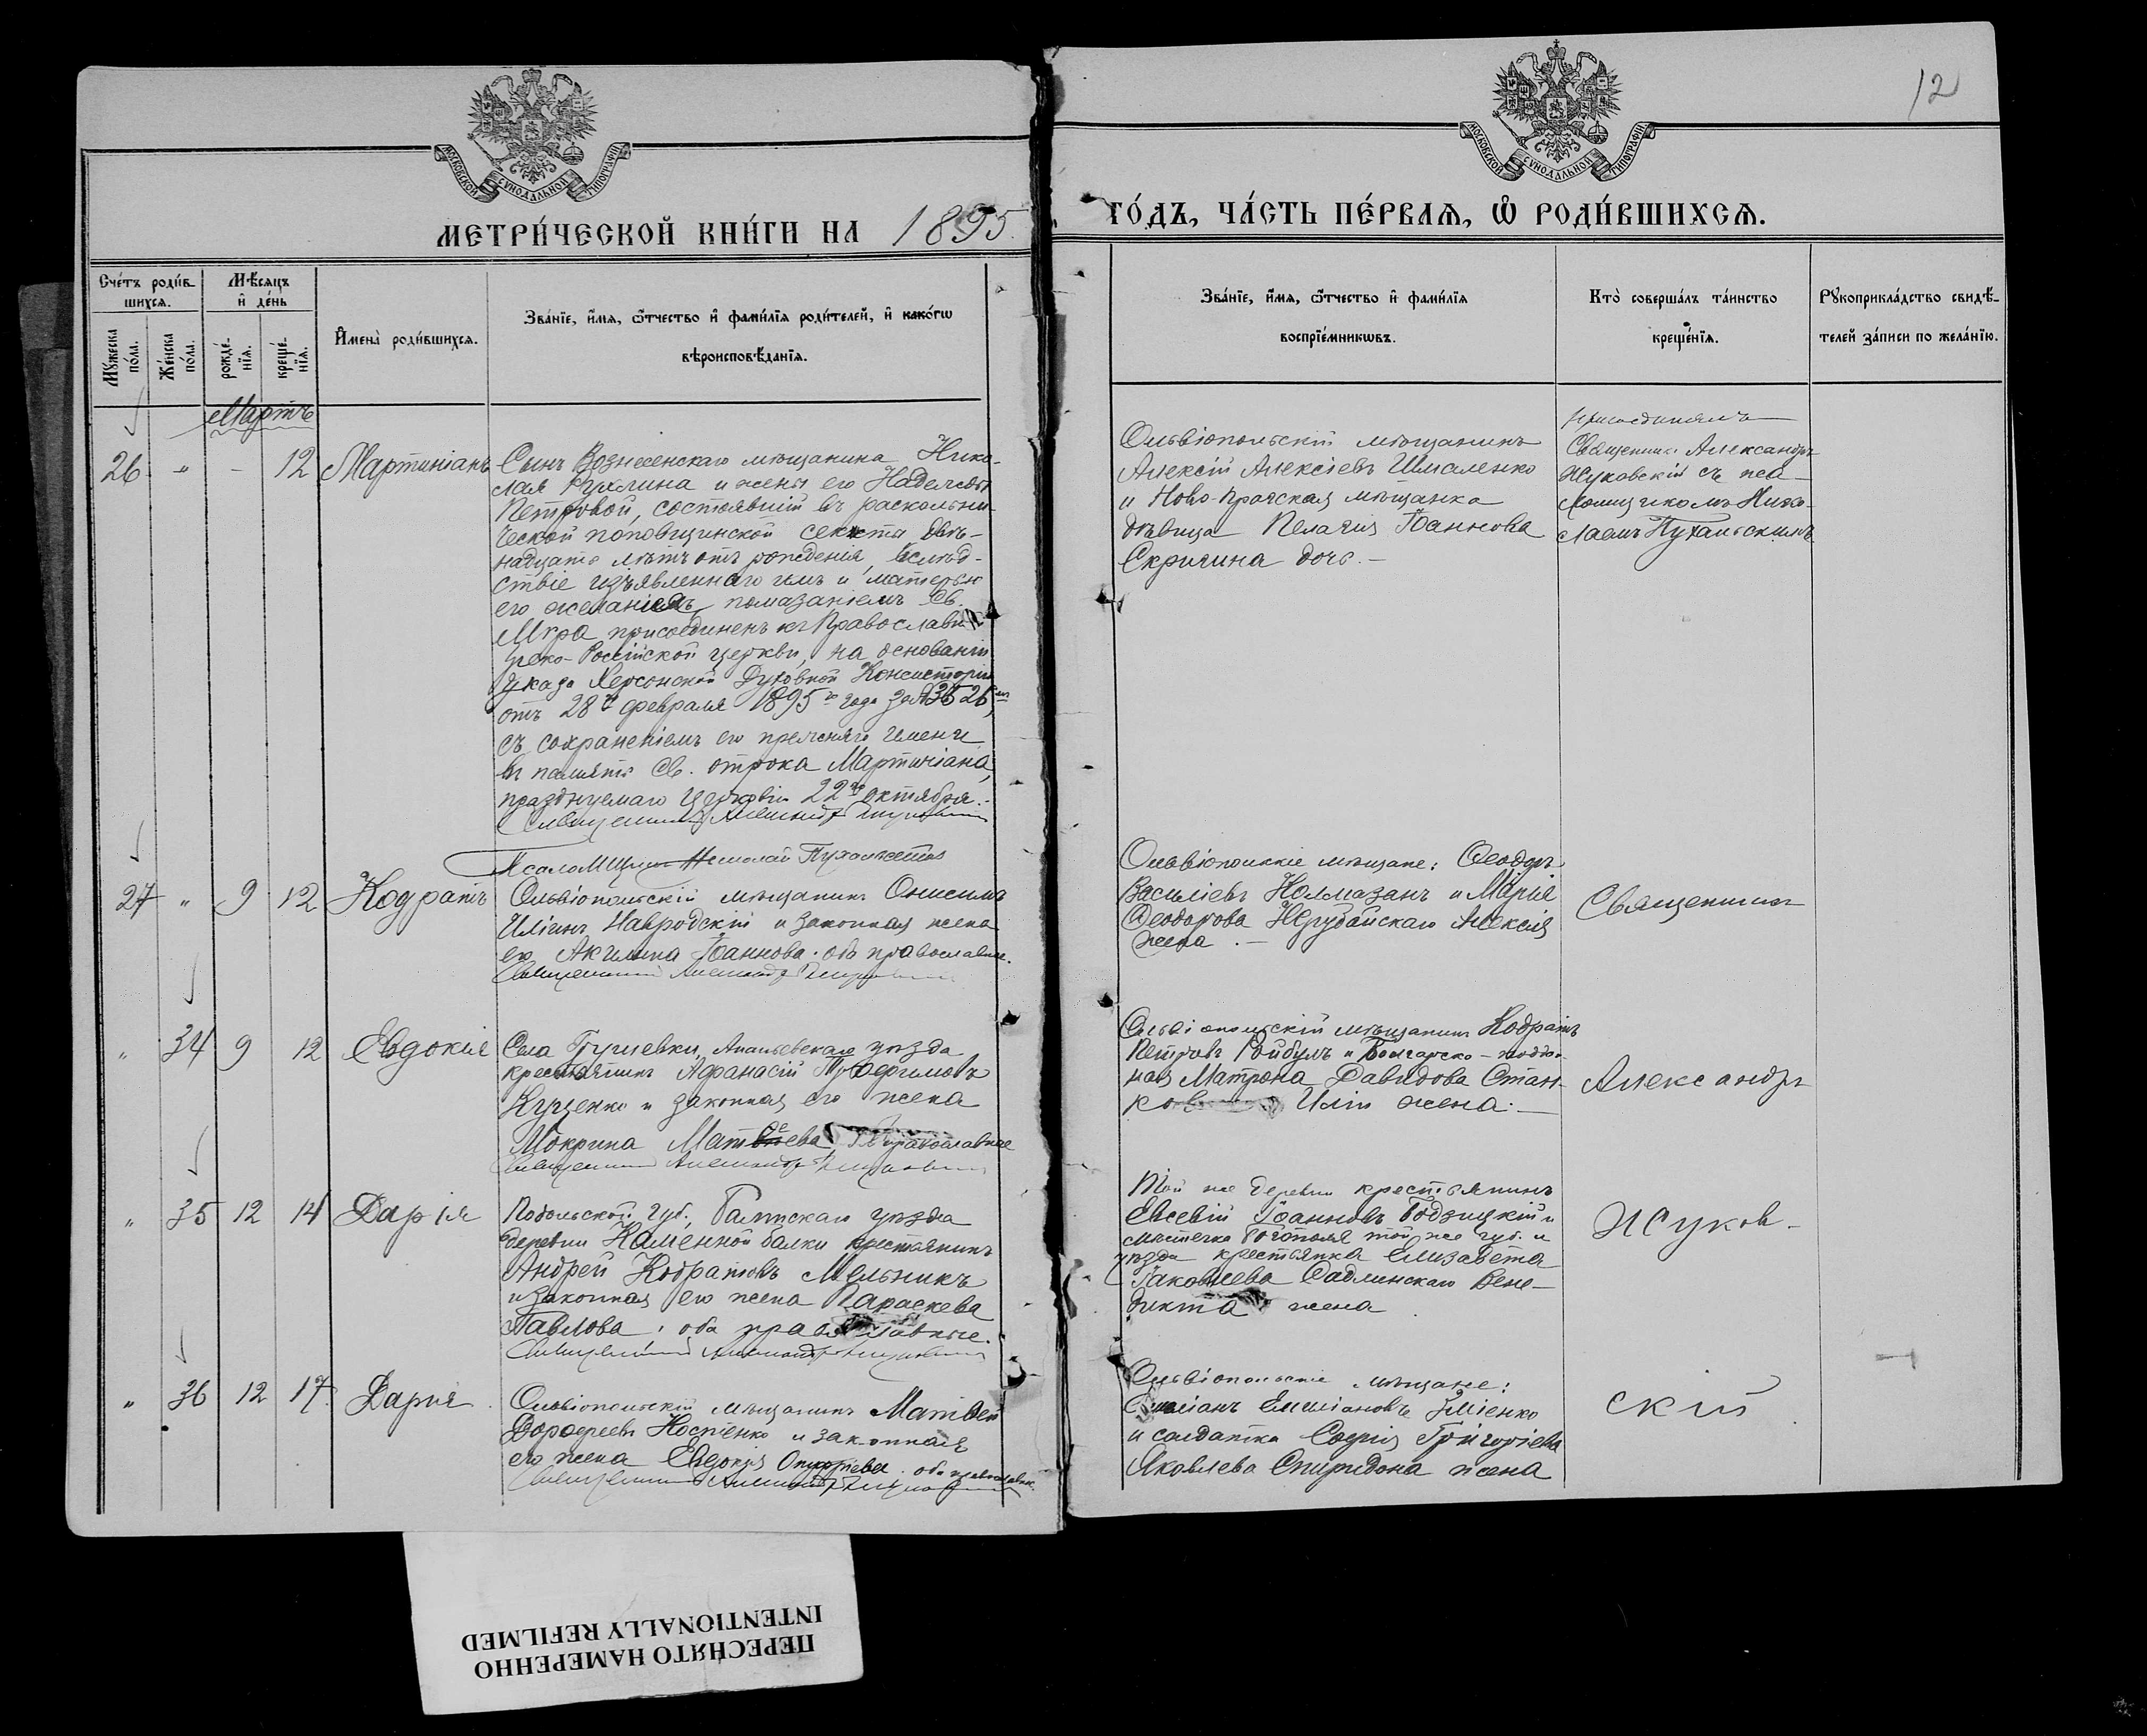 12
МОСКОВСКОЙ СѴНОДАЛЬНОЙ ТИПОГРАФІИ
МОСКОВСКОЙ СѴНОДАЛЬНОЙ ТИПОГРАФІИ
МЕТРИ́ЧЕСКОЙ КНИ́ГИ НА 1895
ГО́ДЪ, ЧА́СТЬ ПЕ́РВАѦ, Ѽ РОДИ́ВШИХСѦ.
Сче́тъ роди́в-
шихсѧ.
Мꙋ́жеска по́ла.
Же́нска по́ла.
Мѣ́сѧцъ
и҆ де́нь
рожде́-нїѧ.
креще́-нїѧ.
И҆мена̀ роди́вшихсѧ.
Зва́нїе, и҆́мѧ, ѻ҆́тчество и҆ фами́лїѧ роди́телей, и҆ како́гѡ
вѣроисповѣ́данїѧ.
Зва́нїе, и҆́мѧ, ѻ҆́тчество и҆ фами́лїѧ
воспрїе́мникѡвъ.
Кто̀ соверша́лъ та́инство
креще́нїѧ.
Рꙋкоприкла́дство свидѣ́-
телей за́писи по жела́нїю.
Мартъ
26 " - 12 Мартиніанъ
Сынъ Вознесенскаго мѣщанина Нико-
лая Кухлина и жены его Надежды
Петровой, состоявшій въ раскольни-
ческой поповщинской секты двѣ-
надцати лѣтъ отъ рожденія, вслѣд-
ствіе изъявленнаго имъ и матерью
его желанія, помазаніемъ Св.
Мѵра присоединенъ къ Православной
Греко-Россійской церкви, на основаніи
указа Херсонской Духовной Консисторіи
отъ 28 февраля 1895 го года за №
съ сохраненіемъ его прежняго имени
въ память Св. отрока Мартиніана,
празднуемаго Церковію 22го октября.
Священникъ Александръ Жуковскій
Псаломщикъ Николай Пухальскій
Ольвіопольскій мѣщанинъ
Алексій Алексіевъ Шмаленко
и Ново-Прагская мѣщанка
дѣвица Пелагія Іоаннова
Скригина дочь. -
присоединялъ
Священникъ Александръ
Жуковскій съ пса-
ломщикомъ Нико-
лаемъ Пухальскимъ
27 " 9 12 Кодратъ
Ольвіопольскій мѣщанинъ Онисимъ
Иліинъ Навродскій и законная жена
его Акилина Іоаннова. оба православные.
Священникъ Александръ Жуковскій
Ольвіопольскіе мѣщане: Ѳеодоръ
Василіевъ Колмазанъ и Марія
Ѳеодорова Негрубайскаго Алексія
жена. -
Священникъ
" 34 9 12 Евдокія
Села Грушевки, Ананьевскаго уѣзда
крестьянинъ Аѳанасій
Куценко и законная его жена
Мокрина Матѳеева, православные
Священникъ Александръ Жуковскій
Ольвіопольскій мѣщанинъ Кодратъ
Петровъ Ройбулъ и Болгарско-поддан-
ная Матрона Давидова Стан-
ков Иліи жена. -
Александръ
" 35 12 14 Дарія
Подольской губ., Балтскаго уѣзда
деревни Каменной балки крестьянинъ
Андрей Кодратовъ Мельникъ
и законная его жена Параскева
Павлова; оба православные.
Священникъ Александръ Жуковскій
Той же деревни крестьянинъ
Евсевій Іоанновъ Годзицкій и
мѣстечка Богополя той же губ. и
уѣзда крестьянка Елизавета
Іаковлева Садлинскаго Вене-
дикта жена
Жуков-
" 36 12 17 Дарія
Ольвіопольскій мѣщанинъ Матѳей
Дороѳеевъ Костенко и законная
его жена Евдокія Онуфріева. оба православные.
Священникъ Александръ Жуковскій
Ольвіопольскіе мѣщане:
Емиліанъ Емиліановъ Зміенко
и солдатка Софія Григоріева
Яковлева Спиридона жена
скій
ПЕРЕСНЯТО НАМЕРЕННО
INTENTIONALLY REFILMED